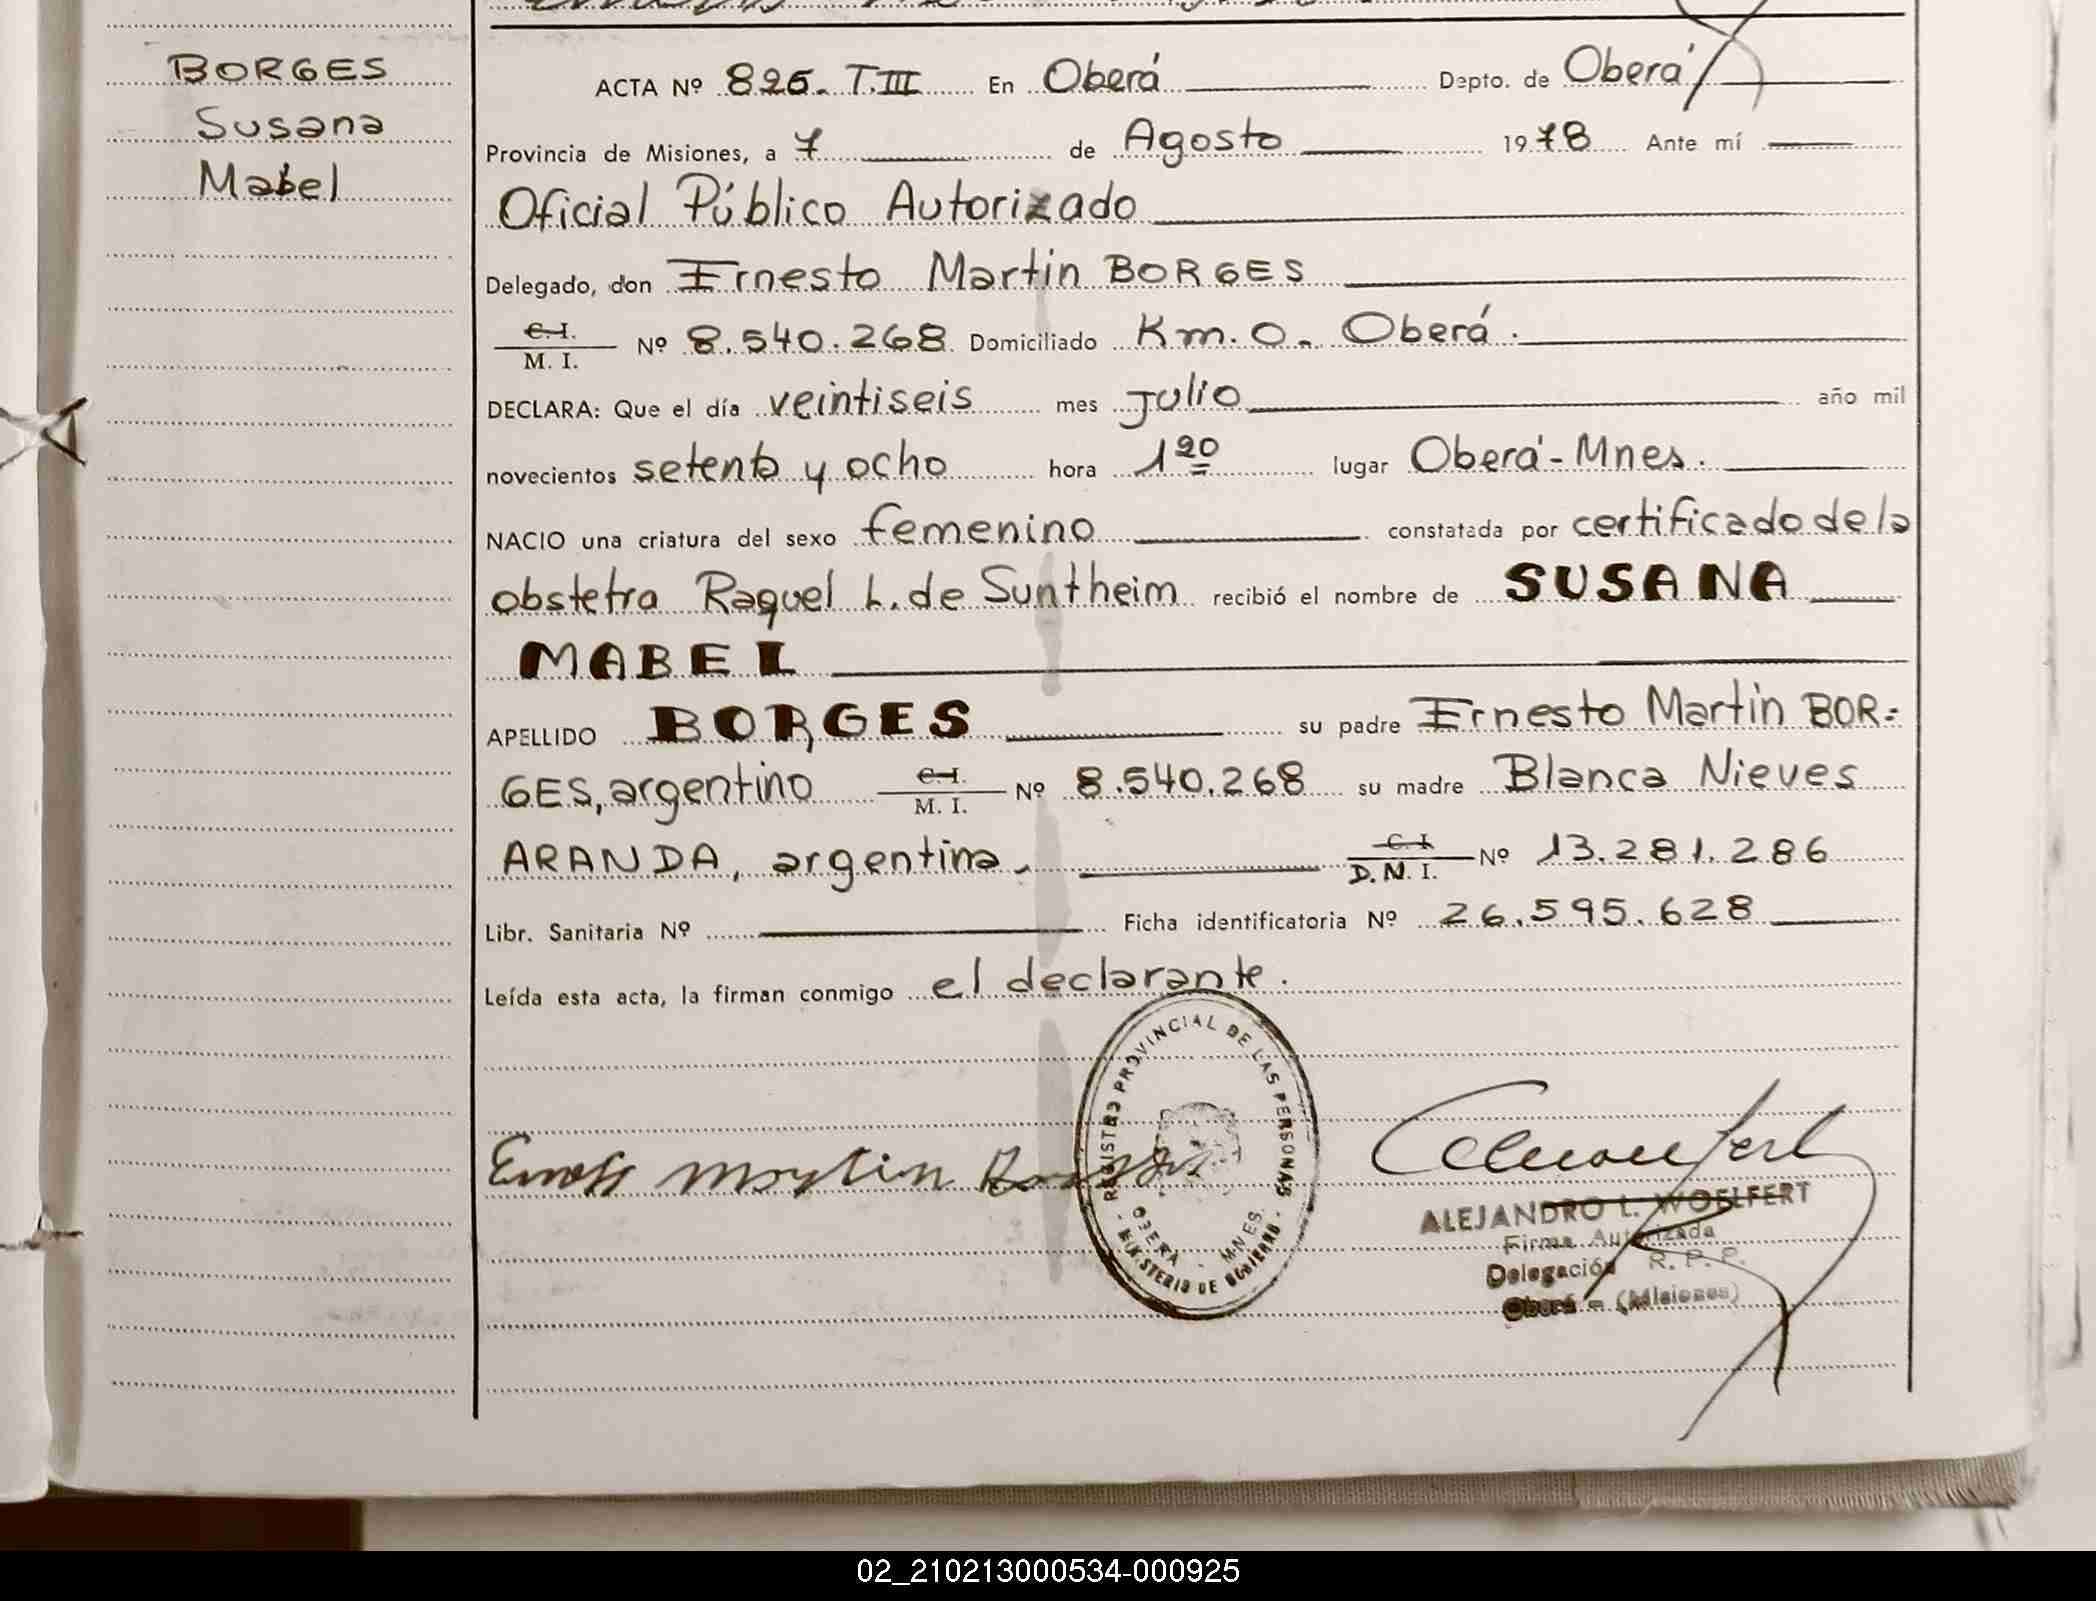 BORGES
Susana
Mabel
ACTA Nº 826. T.III En Oberá Depto. de Oberá
Provincia de Misiones, a 7 de Agosto 1978 Ante mí
Oficial Público Autorizado
Delegado, don Ernesto Martin BORGES
C.I.
M. I. Nº 8.540.268 Domiciliado Km. 0. Oberá.
DECLARA: Que el día veintiseis mes julio año mil
novecientos setenta y ocho hora 1 20 lugar Oberá - Mnes.
NACIO una criatura del sexo femenino constatada por certificado de la
obstetra Raquel L. de Suntheim recibió el nombre de SUSANA
MABEL
APELLIDO BORGES su padre Ernesto Martin BOR=
GES, argentino C.I. M. I. Nº 8.540.268 su madre Blanca Nieves
ARANDA, argentina. C.I. D.N. I. Nº 13.281.286
Libr. Sanitaria Nº Ficha identificatoria Nº 26.595.628
Leída esta acta, la firman conmigo el declarante.
REGISTRO PROVINCIAL DE LAS PERSONAS
OBERA - MNES.
- MINISTERIO DE GOBIERNO -
Martin
ALEJANDRO L. WOELFERT
Firma Autorizada
Delegación R. P. P.
Oberá - (Misiones)
02_210213000534-000925